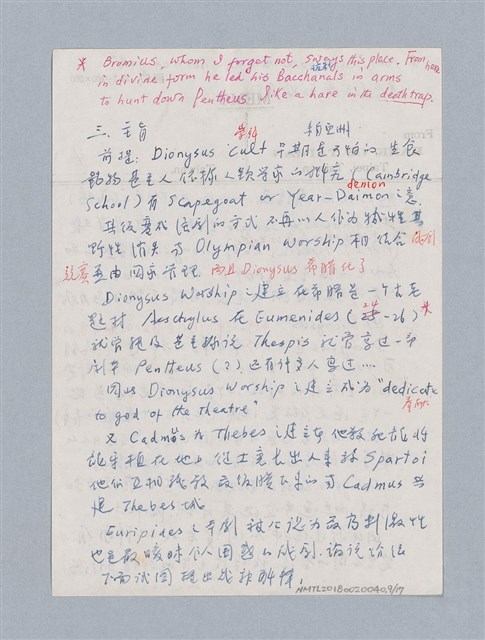 * Bromius, whom I forget not, sways this place. From here
in divine form he led his Bacchanals in arms
to hunt down Pentheus like a hare in the death trap.
三、主旨
前提：Dionysus cult 早期是可怕的生食
動物 人類學家的 (Cambridge
demon
School) 有 Scapegoat or Year-Daimon 之意
其後 的方式 不再以人作為犧牲
野性消失 與 Olympian Worship 相結合
競賽 並由國家管理 而且 Dionysus 希臘化了
Dionysus Worship 之建立在希臘是一个古老
題材 Aeschylus 在 Eumenides (24-26) *
試嘗 說 Thespis 試嘗寫過一部
劇本 Pentheus (?) 還有許多人寫過……
因此 Dionysus Worship 之建立成為 "dedicate
to god of the theatre"
又 Cadmos 為 Thebes 之建立者 他殺死龍將
龍牙植在地上 從土竟長出人來 Spartoi
他們互相殘殺 最後 與 Cadmus 共
建 Thebes 城
Euripides 之本劇 被公認為最具刺激性
也是最曖昧令人困惑的戲劇
下面試圖理出
NMTL20180020040,9/17